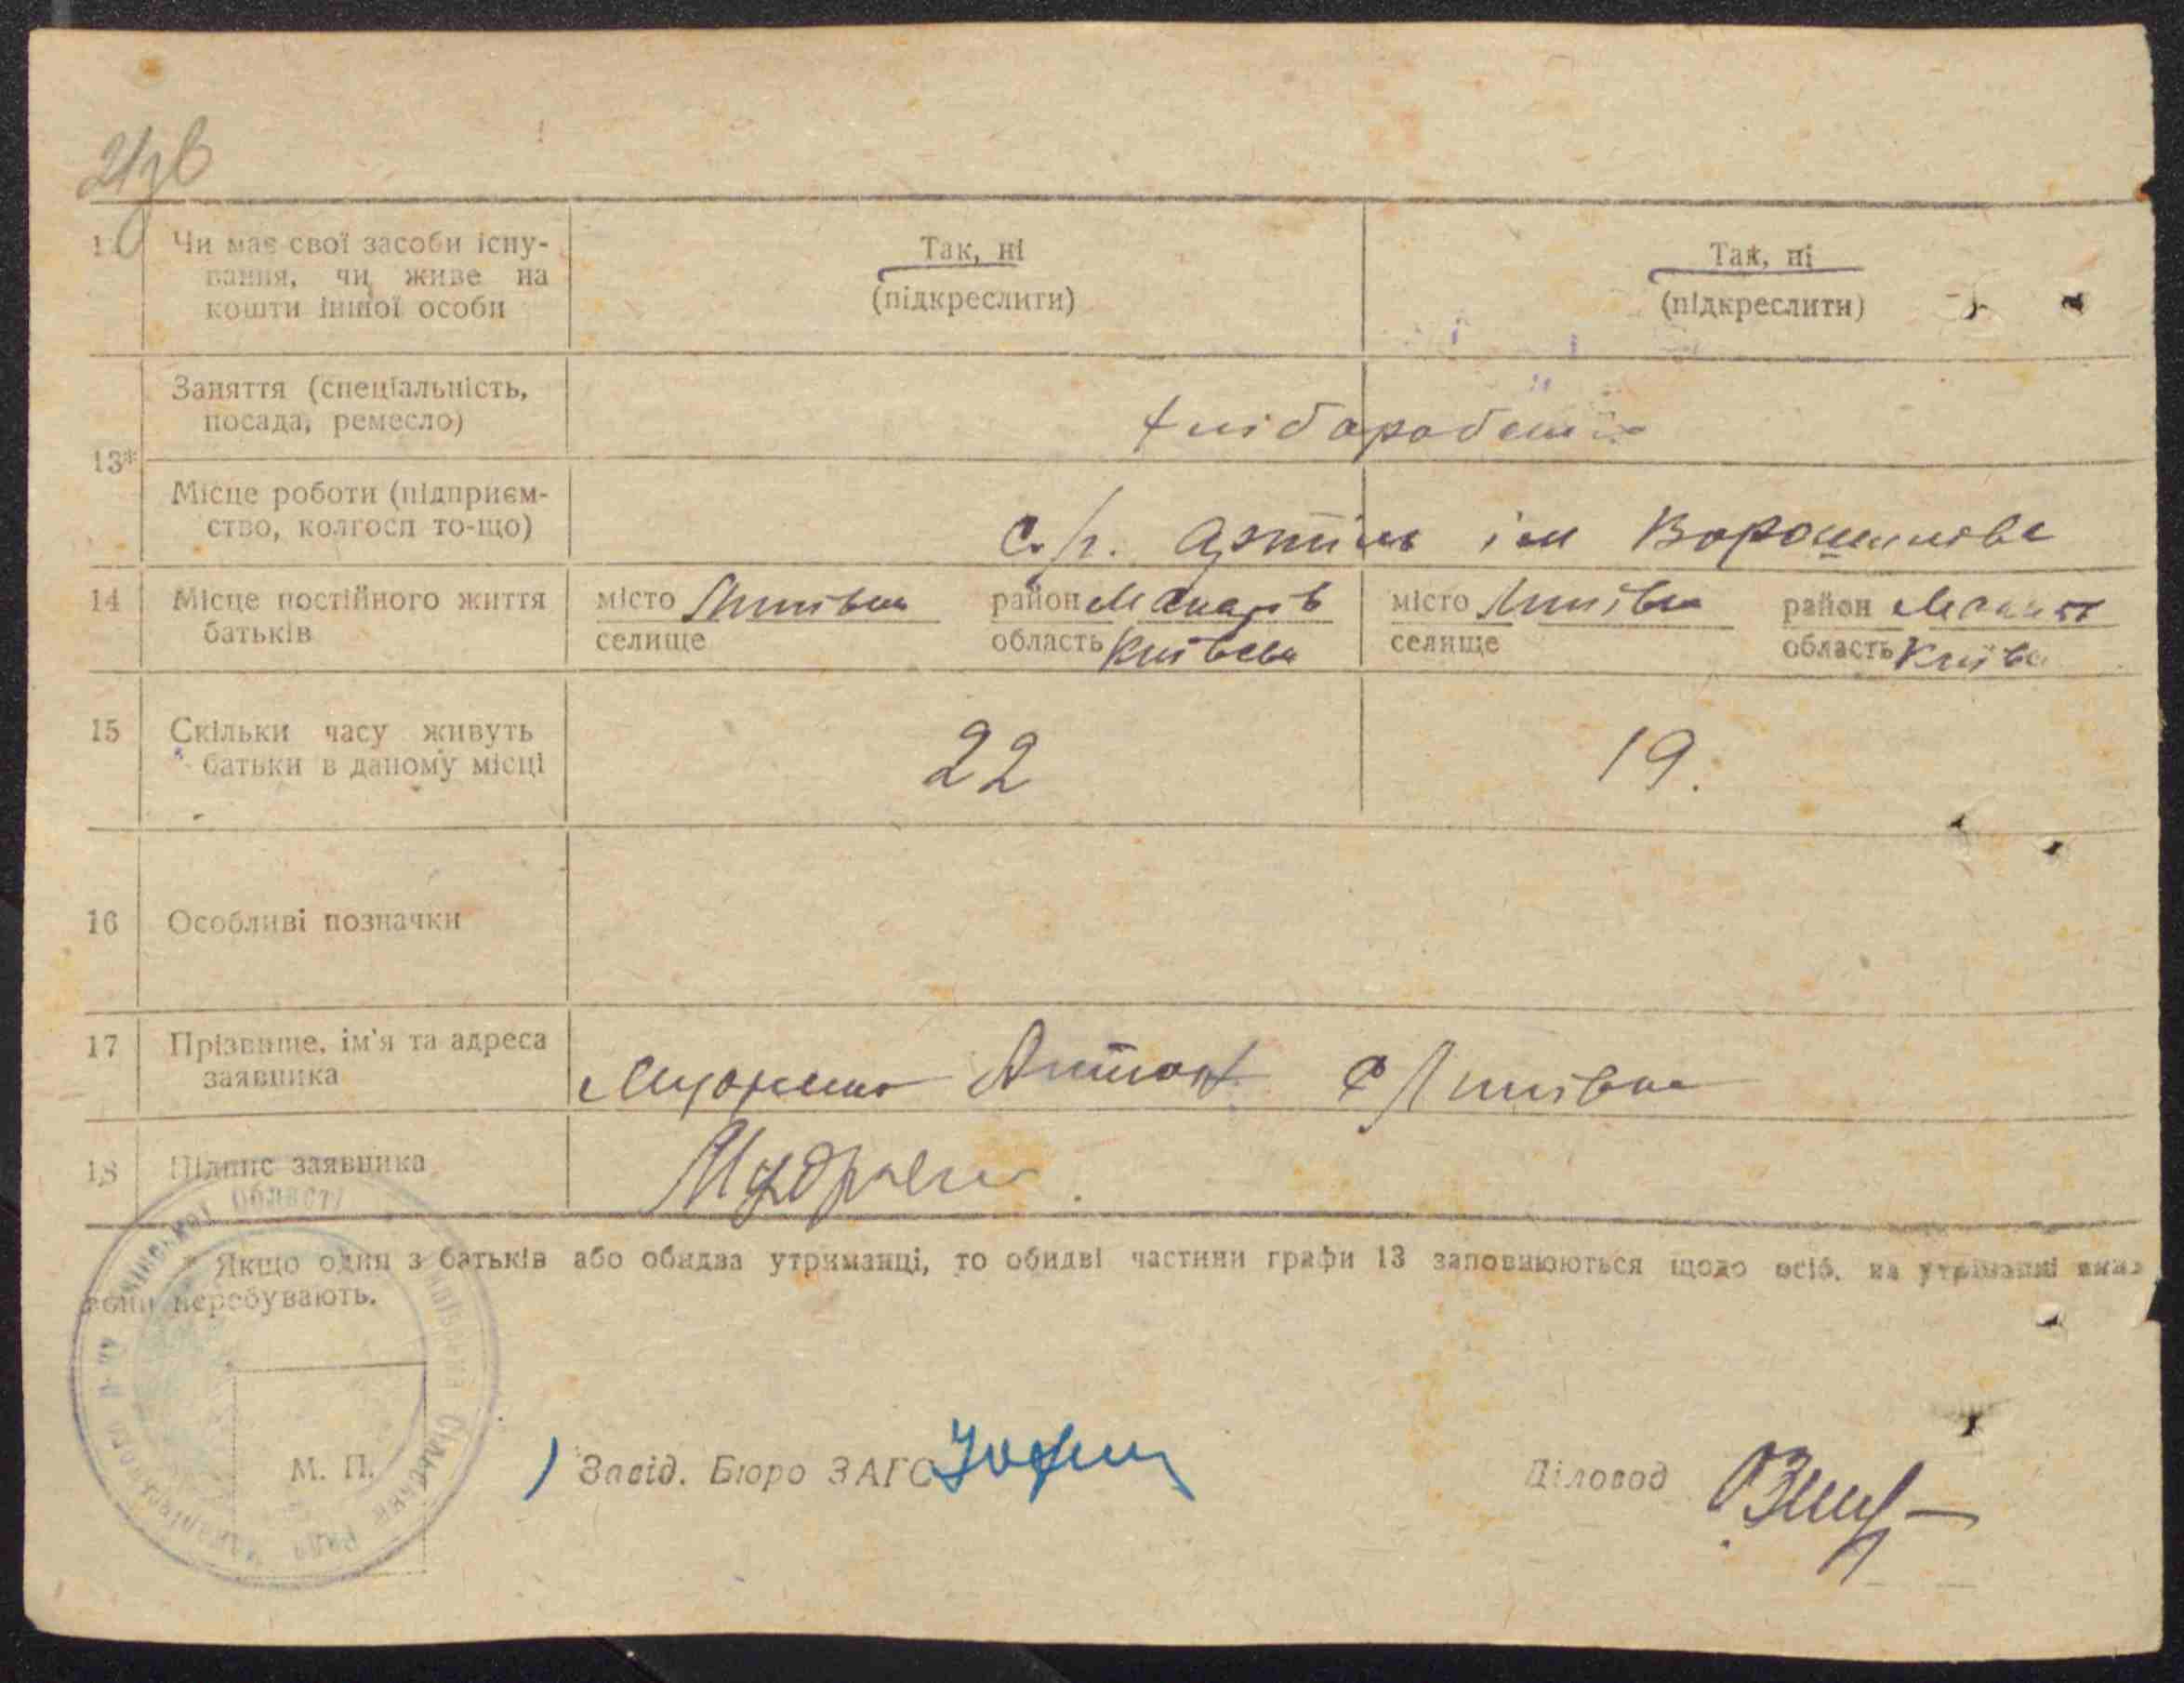 Чи має свої засоби існу-
вання, чи живе на
кошти іншої особи
Так, ні
(підкреслити)
Так, ні
(підкреслити)
13*
Заняття (спеціальність,
посада, ремесло)
Місце роботи (підприєм-
ство, колгосп то-що)
С/г. артіль ім Ворошилова
14
Місце постійного життя
батьків
місто Липівка
селище
район Макарів
область Київська
місто Липівка
селище
район
область
15
Скільки часу живуть
батьки в даному місці
22
19.
16
Особливі позначки
17
Прізвище, ім'я та адреса
заявника
Антон с Липівка
18
Підпис заявника
* Якщо один з батьків або обидва утриманці, то обидві частини графи 13 заповнюються щодо осіб, на утриманні яких
вони перебувають.
області
Сільська Рада
р-ну
М. П.
Завід. Бюро ЗАГС
Діловод